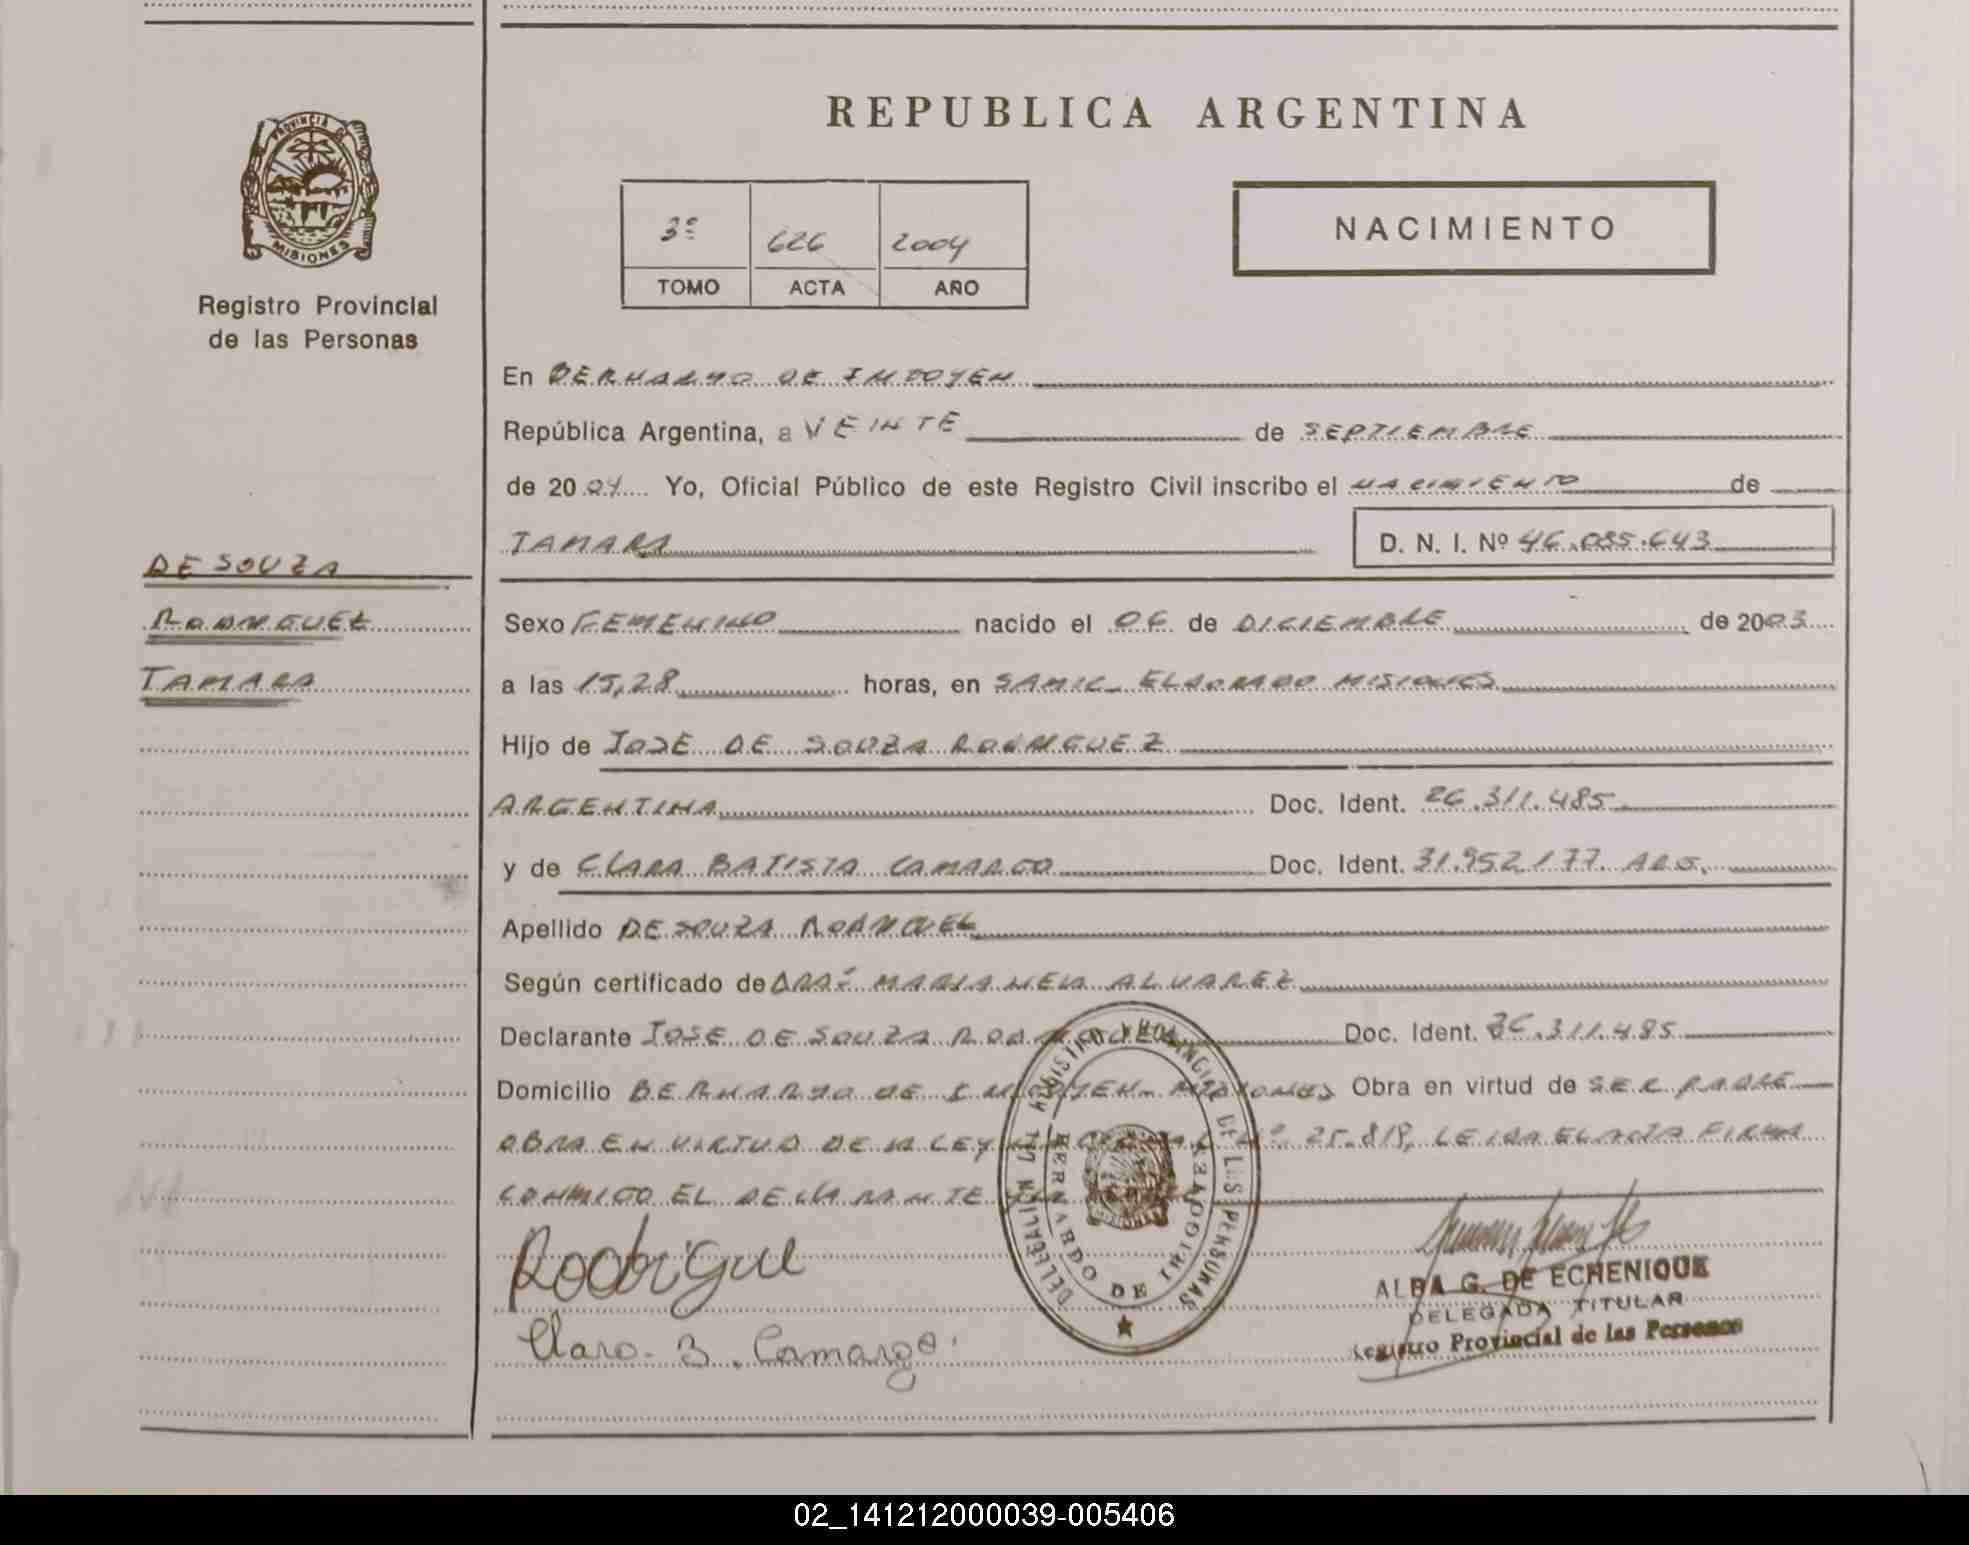 REPUBLICA ARGENTINA
PROVINCIA DE
MISIONES
Registro Provincial
de las Personas
3º 626 2004
TOMO ACTA AÑO
NACIMIENTO
En BERNARDO DE IRIGOYEN
República Argentina, a VEINTE de SEPTIEMBRE
de 2004 Yo, Oficial Público de este Registro Civil inscribo el NACIMIENTO de
TAMARA D. N. I. Nº 46.085.643
DE SOUZA
RODRIGUEZ
TAMARA
Sexo FEMENINO nacido el 06 de DICIEMBRE de 2003
a las 15,28 horas, en SAMIC - ELDORADO MISIONES
Hijo de JOSE DE SOUZA RODRIGUEZ
ARGENTINA Doc. Ident. 26.311.485
y de CLARA BATISTA CAMARGO Doc. Ident. 31.952.177. ARG.
Apellido DE SOUZA RODRIGUEZ
Según certificado de DRA. MARIANELA ALVAREZ
Declarante JOSE DE SOUZA RODRIGUEZ Doc. Ident. 26.311.485
Domicilio BERNARDO DE IRIGOYEN - MISIONES Obra en virtud de SER PADRE
OBRA EN VIRTUD DE LA LEY Nº 25.819, LEIDA EL ACTA FIRMA
CONMIGO EL DECLARANTE
Rodrigue
Clara B. Camargo
REGISTRO PROVINCIAL DE LAS PERSONAS
BERNARDO DE IRIGOYEN
MISIONES
ALBA G. DE ECHENIQUE
DELEGADA TITULAR
Registro Provincial de las Personas
02_141212000039-005406